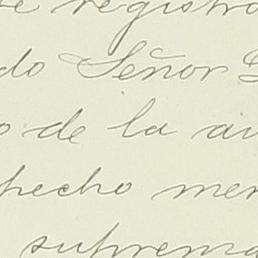 se registro
do Señor D
o de la au
specho mer
suprema